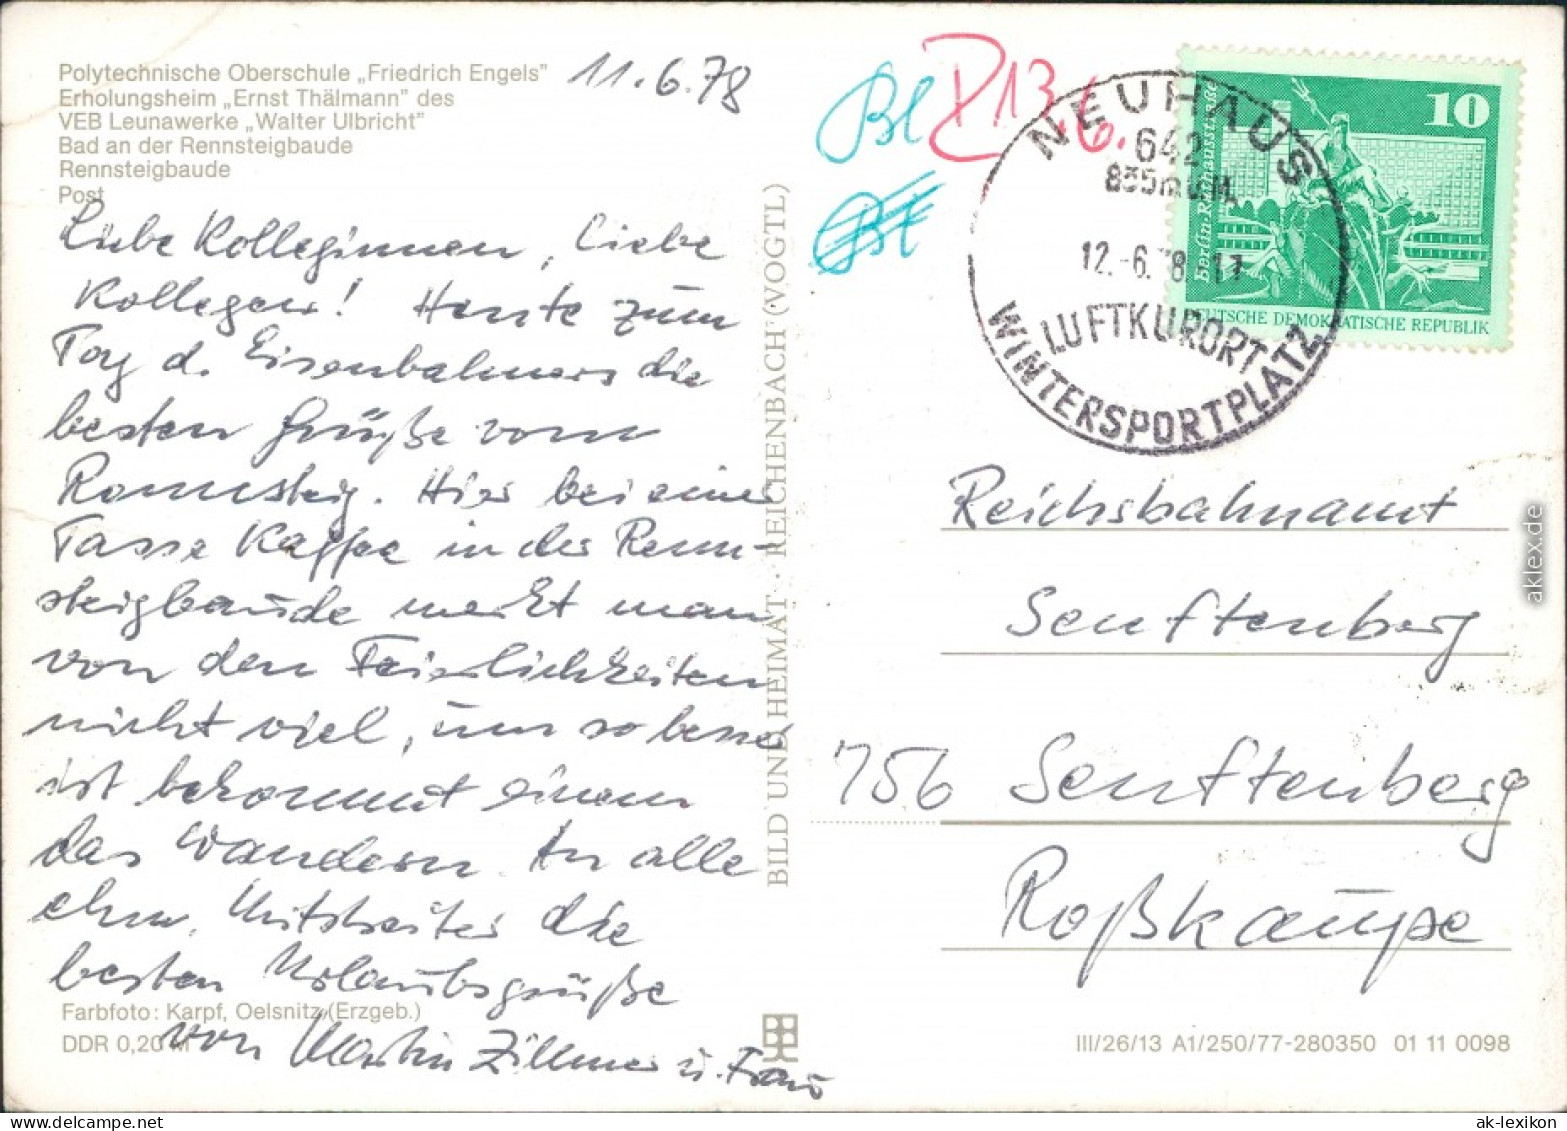 Polytechnische Oberschule „Friedrich Engels"
Erholungsheim „Ernst Thälmann" des
VEB Leunawerke „Walter Ulbricht"
Bad an der Rennsteigbaude
Rennsteigbaude
Post
11.6.78
Liebe Kolleginnen, liebe
Kollegen! Heute zum
Tag d. Eisenbahners die
besten Grüße vom
Rennsteig. Hier bei einer
Tasse Kaffee in der Renn-
steigbaude merkt man
von den Feierlichkeiten
nicht viel, um so besser
ist bekommt einem
das Wandern. An alle
ehm. Mitstreiter die
besten Urlaubsgrüße
von Martin Zillmer u. Frau
Farbfoto: Karpf, Oelsnitz (Erzgeb.)
DDR 0,20 M
BILD UND HEIMAT · REICHENBACH (VOGTL)
Bl 13.6.
Bl
NEUHAUS
642
835m ü. M.
12.-6.78.-17
LUFTKURORT
WINTERSPORTPLATZ
10
Berlin-Rathausstraße
DEUTSCHE DEMOKRATISCHE REPUBLIK
Reichsbahnamt
Senftenberg
756 Senftenberg
Roßkaupe
III/26/13 A1/250/77-280350 01 11 0098
aklex.de
ak-lexikon